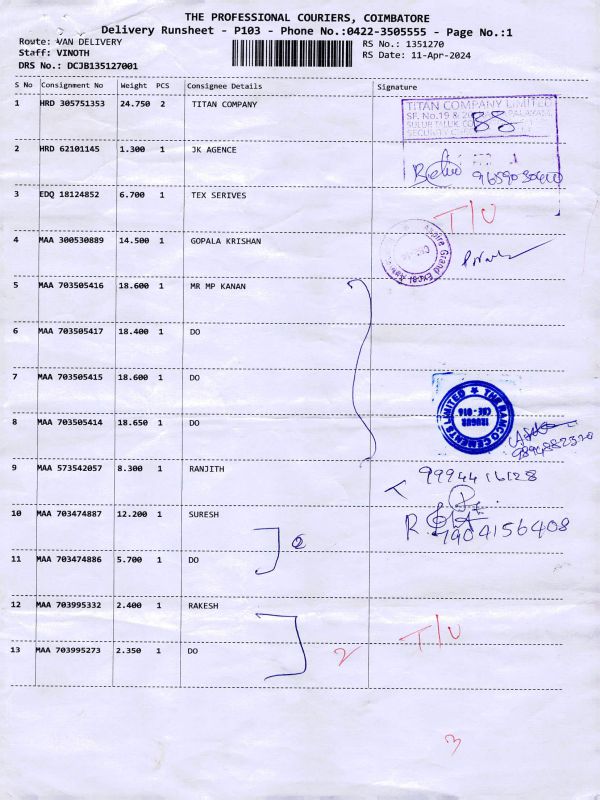 THE PROFESSIONAL COURIERS, COIMBATORE
Delivery Runsheet - P103 - Phone No.:0422-3505555 - Page No.:1
Route: VAN DELIVERY
Staff: VINOTH
DRS No.: DCJB135127001
RS No.: 1351270
RS Date: 11-Apr-2024
S No Consignment No Weight PCS Consignee Details Signature
1 HRD 305751353 24.750 2 TITAN COMPANY
TITAN COMPANY LIMITED
SF. No.19 & 2
88
2 HRD 62101145 1.300 1 JK AGENCE
3 EDQ 18124852 6.700 1 TEX SERIVES
T/U
4 MAA 300530889 14.500 1 GOPALA KRISHAN
5 MAA 703505416 18.600 1 MR MP KANAN
6 MAA 703505417 18.400 1 DO
7 MAA 703505415 18.600 1 DO
8 MAA 703505414 18.650 1 DO
THE RAMCO CEMENTS LIMITED
IRUGUR
CBE - 016
9 MAA 573542057 8.300 1 RANJITH
9994416128
10 MAA 703474887 12.200 1 SURESH
7904156408
11 MAA 703474886 5.700 1 DO
2
12 MAA 703995332 2.400 1 RAKESH
T/U
13 MAA 703995273 2.350 1 DO
2
3